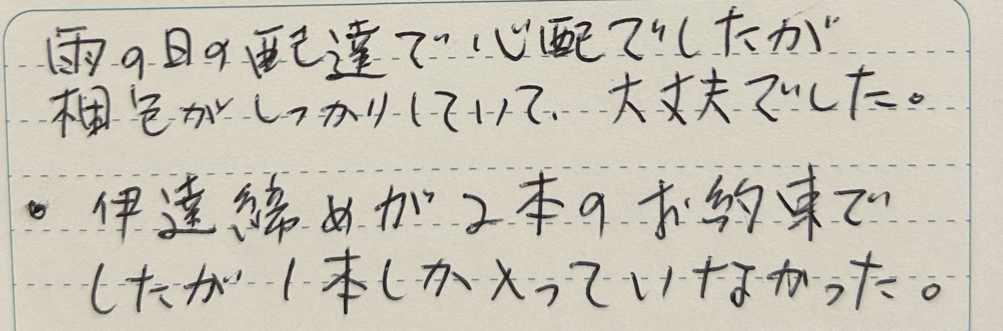 雨の日の配達で心配でしたが
梱包がしっかりしていて、大丈夫でした。
• 伊達締めが2本のお約束で
したが1本しか入っていなかった。